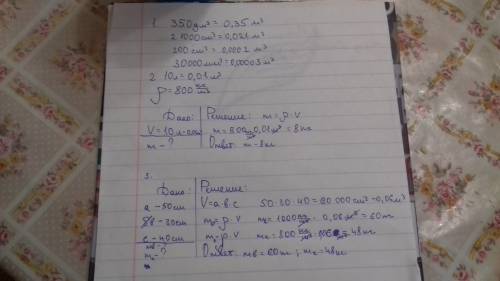 1. 350 дм³ = 0,35 м³
21000 см³ = 0,021 м³
200 см³ = 0,0002 м³
30000 мм³ = 0,00003 м³
2. 10л = 0,01 м³
ρ = 800 кг/м³
Дано: Решение: m = ρ · V
V = 10 л m = 800 · 0,01 м³ = 8 кг
m - ? Ответ: m - 8 кг
3.
Дано: Решение:
a - 50 см V = a·b·c 50·30·40 = 60 000 см³ = 0,06 м³
b - 30 см m = ρ · V m = 1000 кг/м³ · 0,06 м³ = 60
c - 40 см m = ρ · V m = 800 кг/м³ · 0,06 = 48 кг
m - ? Ответ: mв = 60 кг ; mк = 48 кг